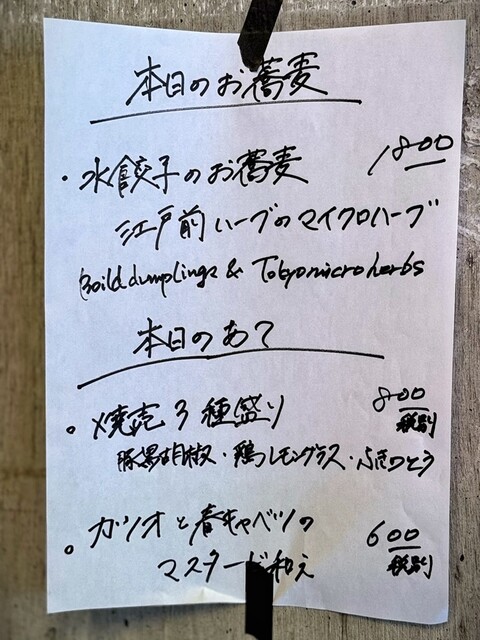 本日のお蕎麦
・水餃子のお蕎麦 1800
江戸前ハーブのマイクロハーブ
Boild dumplings & Tokyo micro herbs
本日のあて
。焼売3種盛り 800
税別
豚黒胡椒・鶏レモングラス・ふきのとう
。カツオと春キャベツの 600
税別
マスタード和え